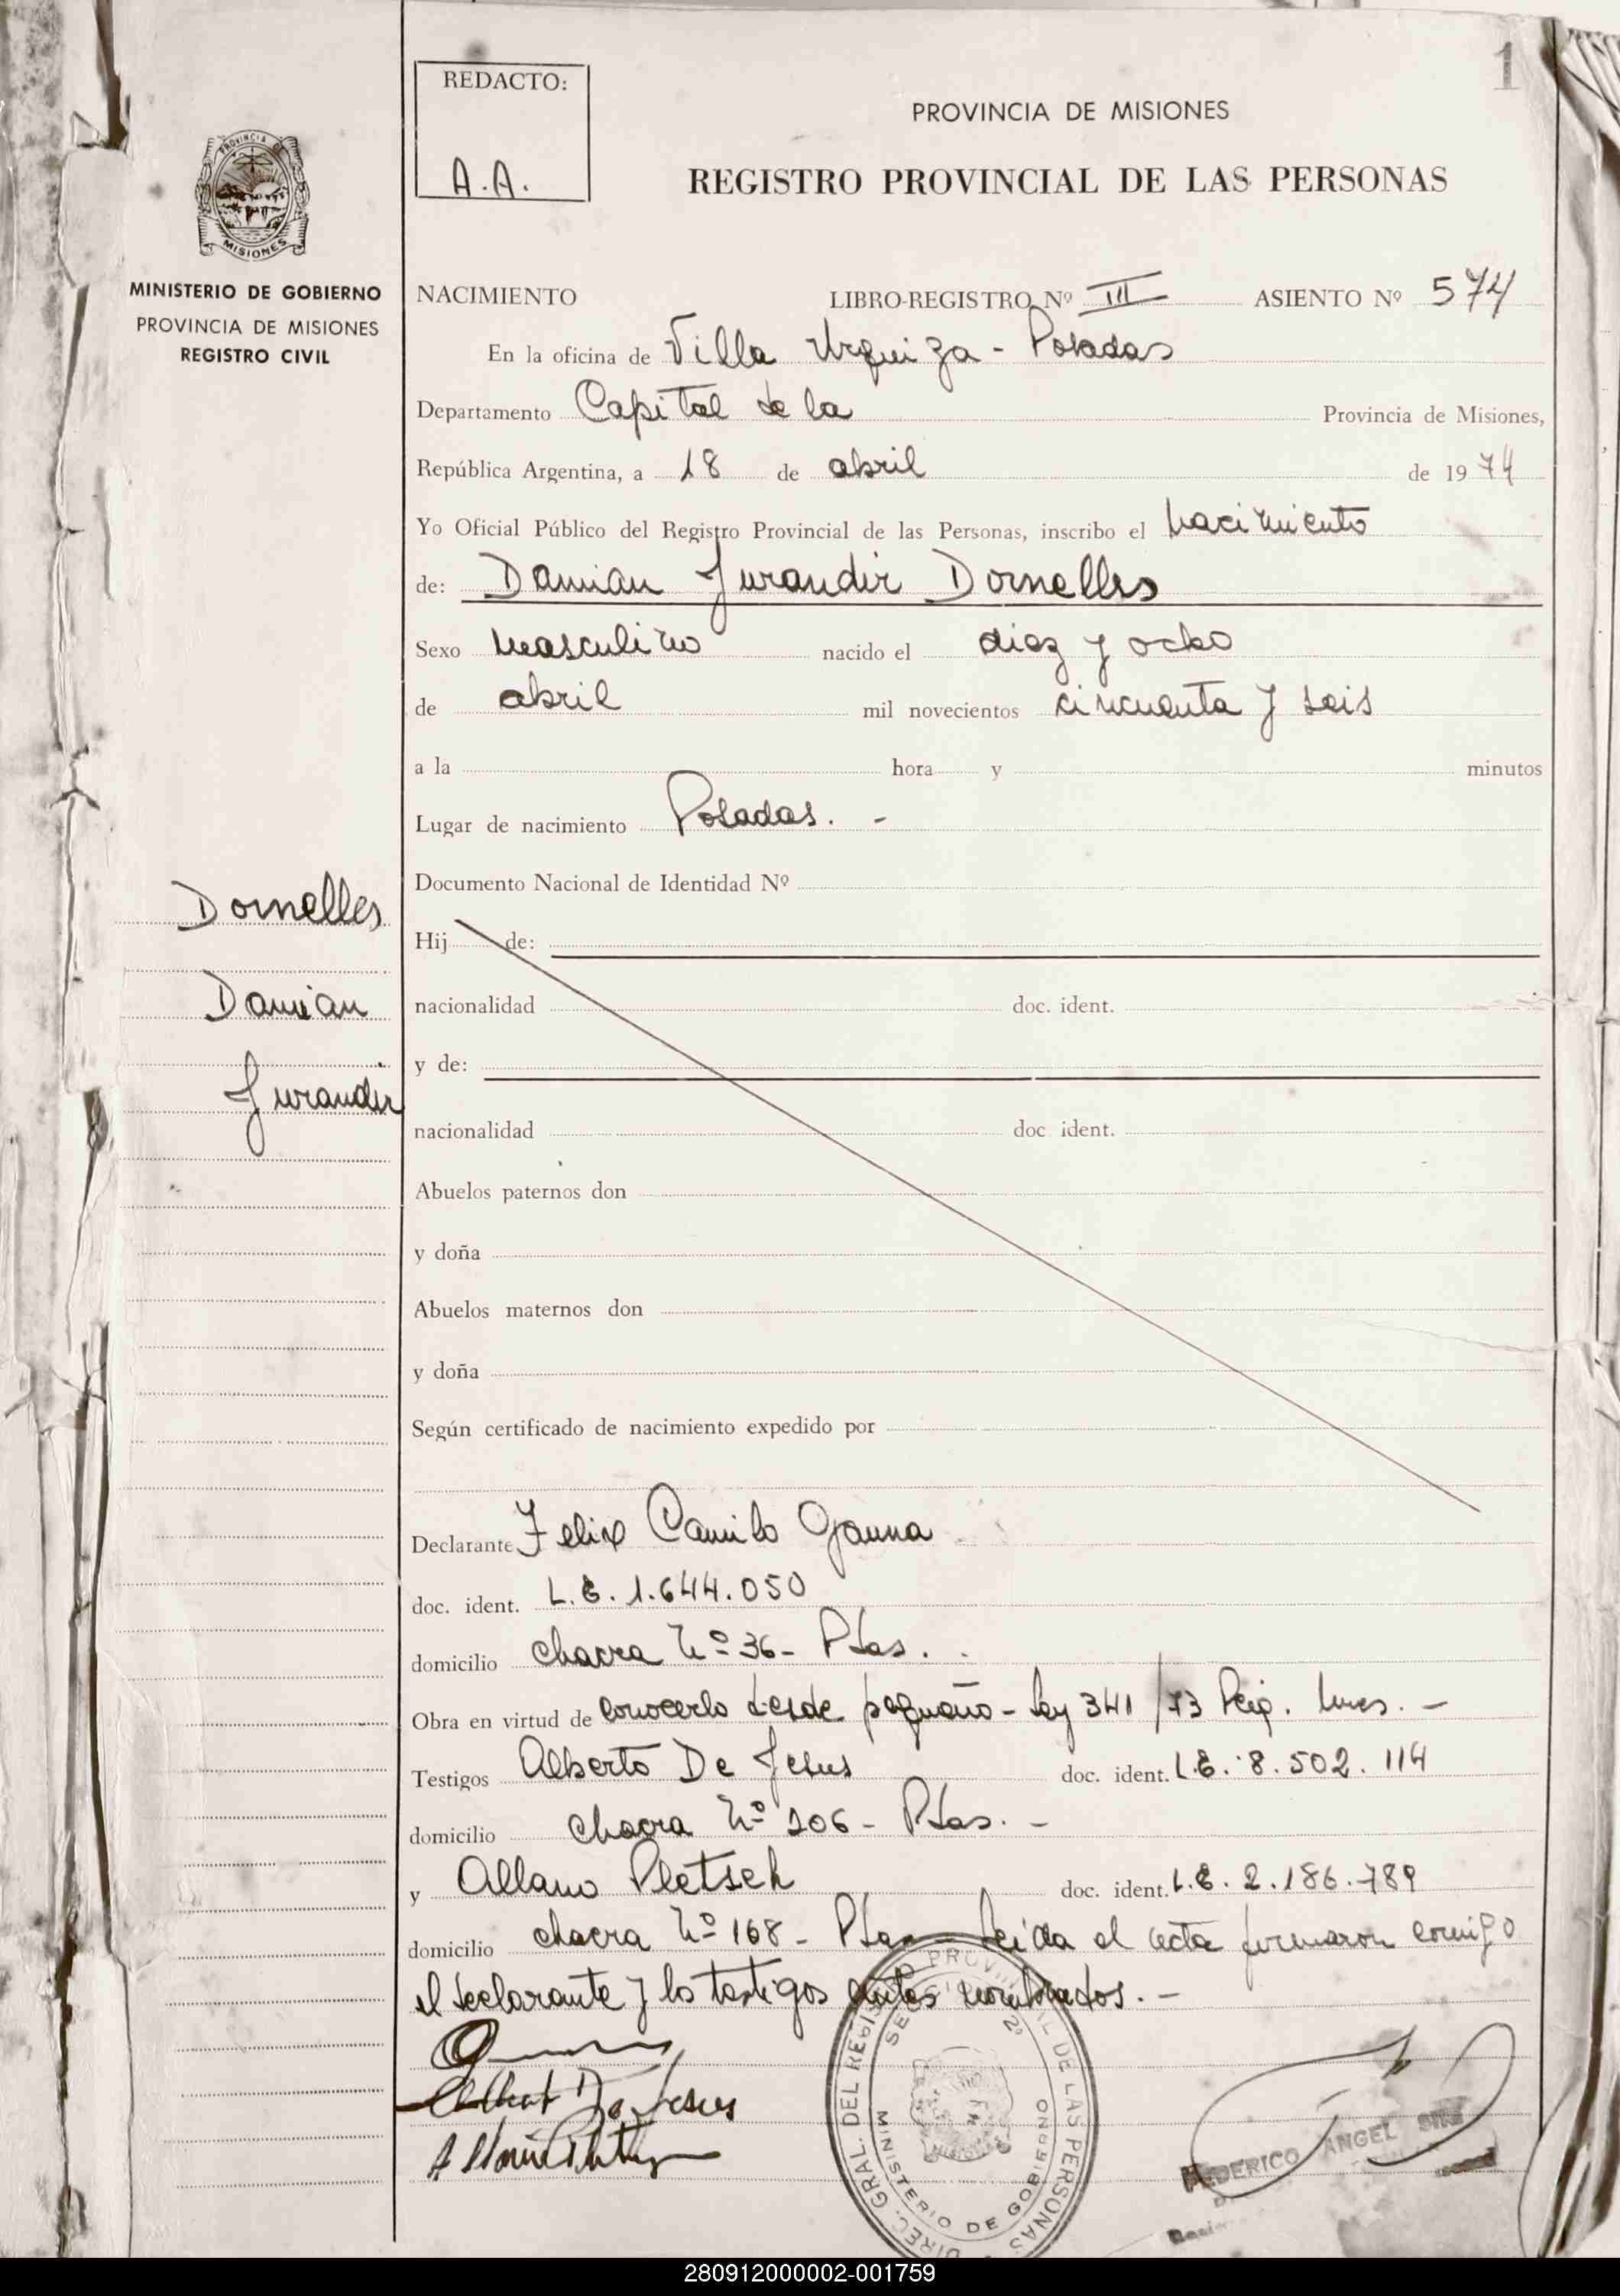 1
REDACTO:
A.A.
PROVINCIA DE MISIONES
REGISTRO PROVINCIAL DE LAS PERSONAS
PROVINCIA DE
MISIONES
MINISTERIO DE GOBIERNO
PROVINCIA DE MISIONES
REGISTRO CIVIL
NACIMIENTO LIBRO-REGISTRO Nº III ASIENTO Nº 574
En la oficina de Villa Urquiza - Posadas
Departamento Capital de la Provincia de Misiones,
República Argentina, a 18 de abril de 1974
Yo Oficial Público del Registro Provincial de las Personas, inscribo el nacimiento
de: Damian Jurandir Dornelles
Sexo masculino nacido el diez y ocho
de abril mil novecientos cincuenta y seis
a la hora y minutos
Lugar de nacimiento Posadas. -
Documento Nacional de Identidad Nº
Dornelles
Damian
Jurandir
Hij de:
nacionalidad doc. ident.
y de:
nacionalidad doc ident.
Abuelos paternos don
y doña
Abuelos maternos don
y doña
Según certificado de nacimiento expedido por
Declarante Felix Camilo Gauna
doc. ident. L.E. 1.644.050
domicilio chacra Nº 36 - Pdas.
Obra en virtud de conocerlo desde pequeño - Ley 341/73
Testigos Alberto De Jesus doc. ident. L.E. 8.502.114
domicilio chacra Nº 106 - Pdas. -
y Allano Pletsch doc. ident. L.E. 2.186.789
domicilio chacra Nº 168 - Pdas - Leída el acta firmaron conmigo
el declarante y los testigos antes nombrados. -
DIREC. GRAL. DEL REGISTRO PROVINCIAL DE LAS PERSONAS
MINISTERIO DE GOBIERNO
FEDERICO ANGEL
280912000002-001759